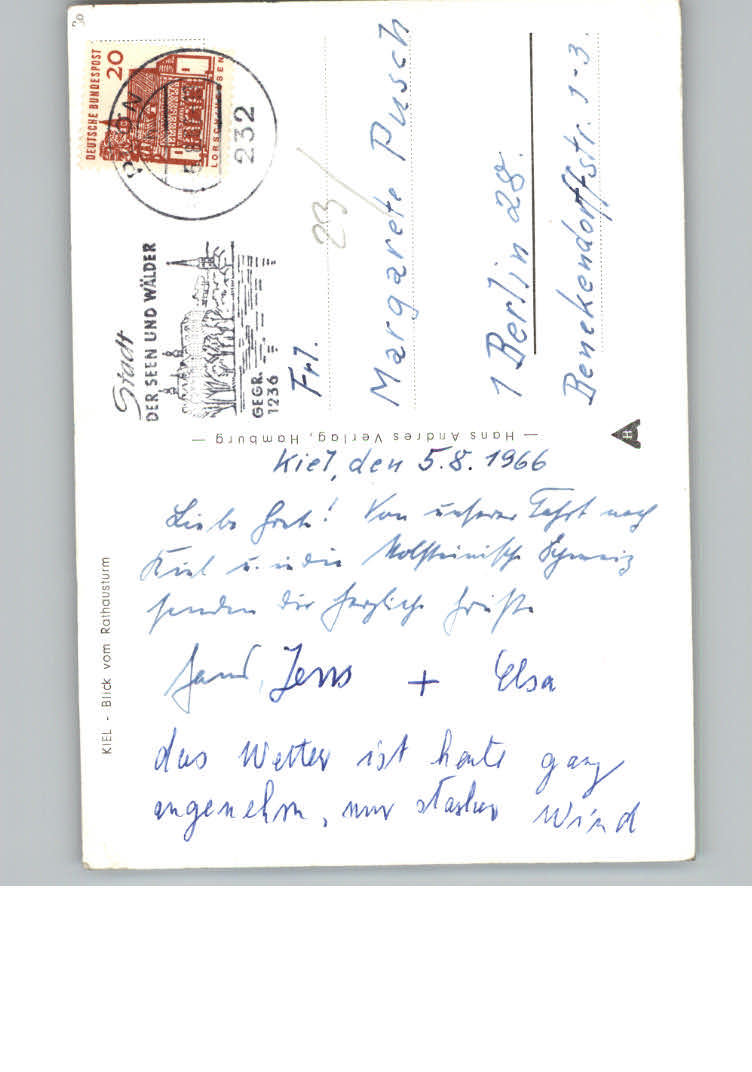 DEUTSCHE BUNDESPOST
20
LORSCH/HESSEN
232
Stadt
DER SEEN UND WÄLDER
GEGR.
1236
Frl.
23
Margarete Pusch
1 Berlin 28.
Benekendorffstr. 1-3.
— Hans Andres Verlag, Hamburg —
H
KIEL - Blick vom Rathausturm
Kiel, den 5.8.1966
Liebe Grete! Von unserer Fahrt nach
Kiel u. in die Holsteinische Schweiz
senden dir herzliche Grüße
Jens + Elsa
das Wetter ist heute ganz
angenehm, nur starker Wind